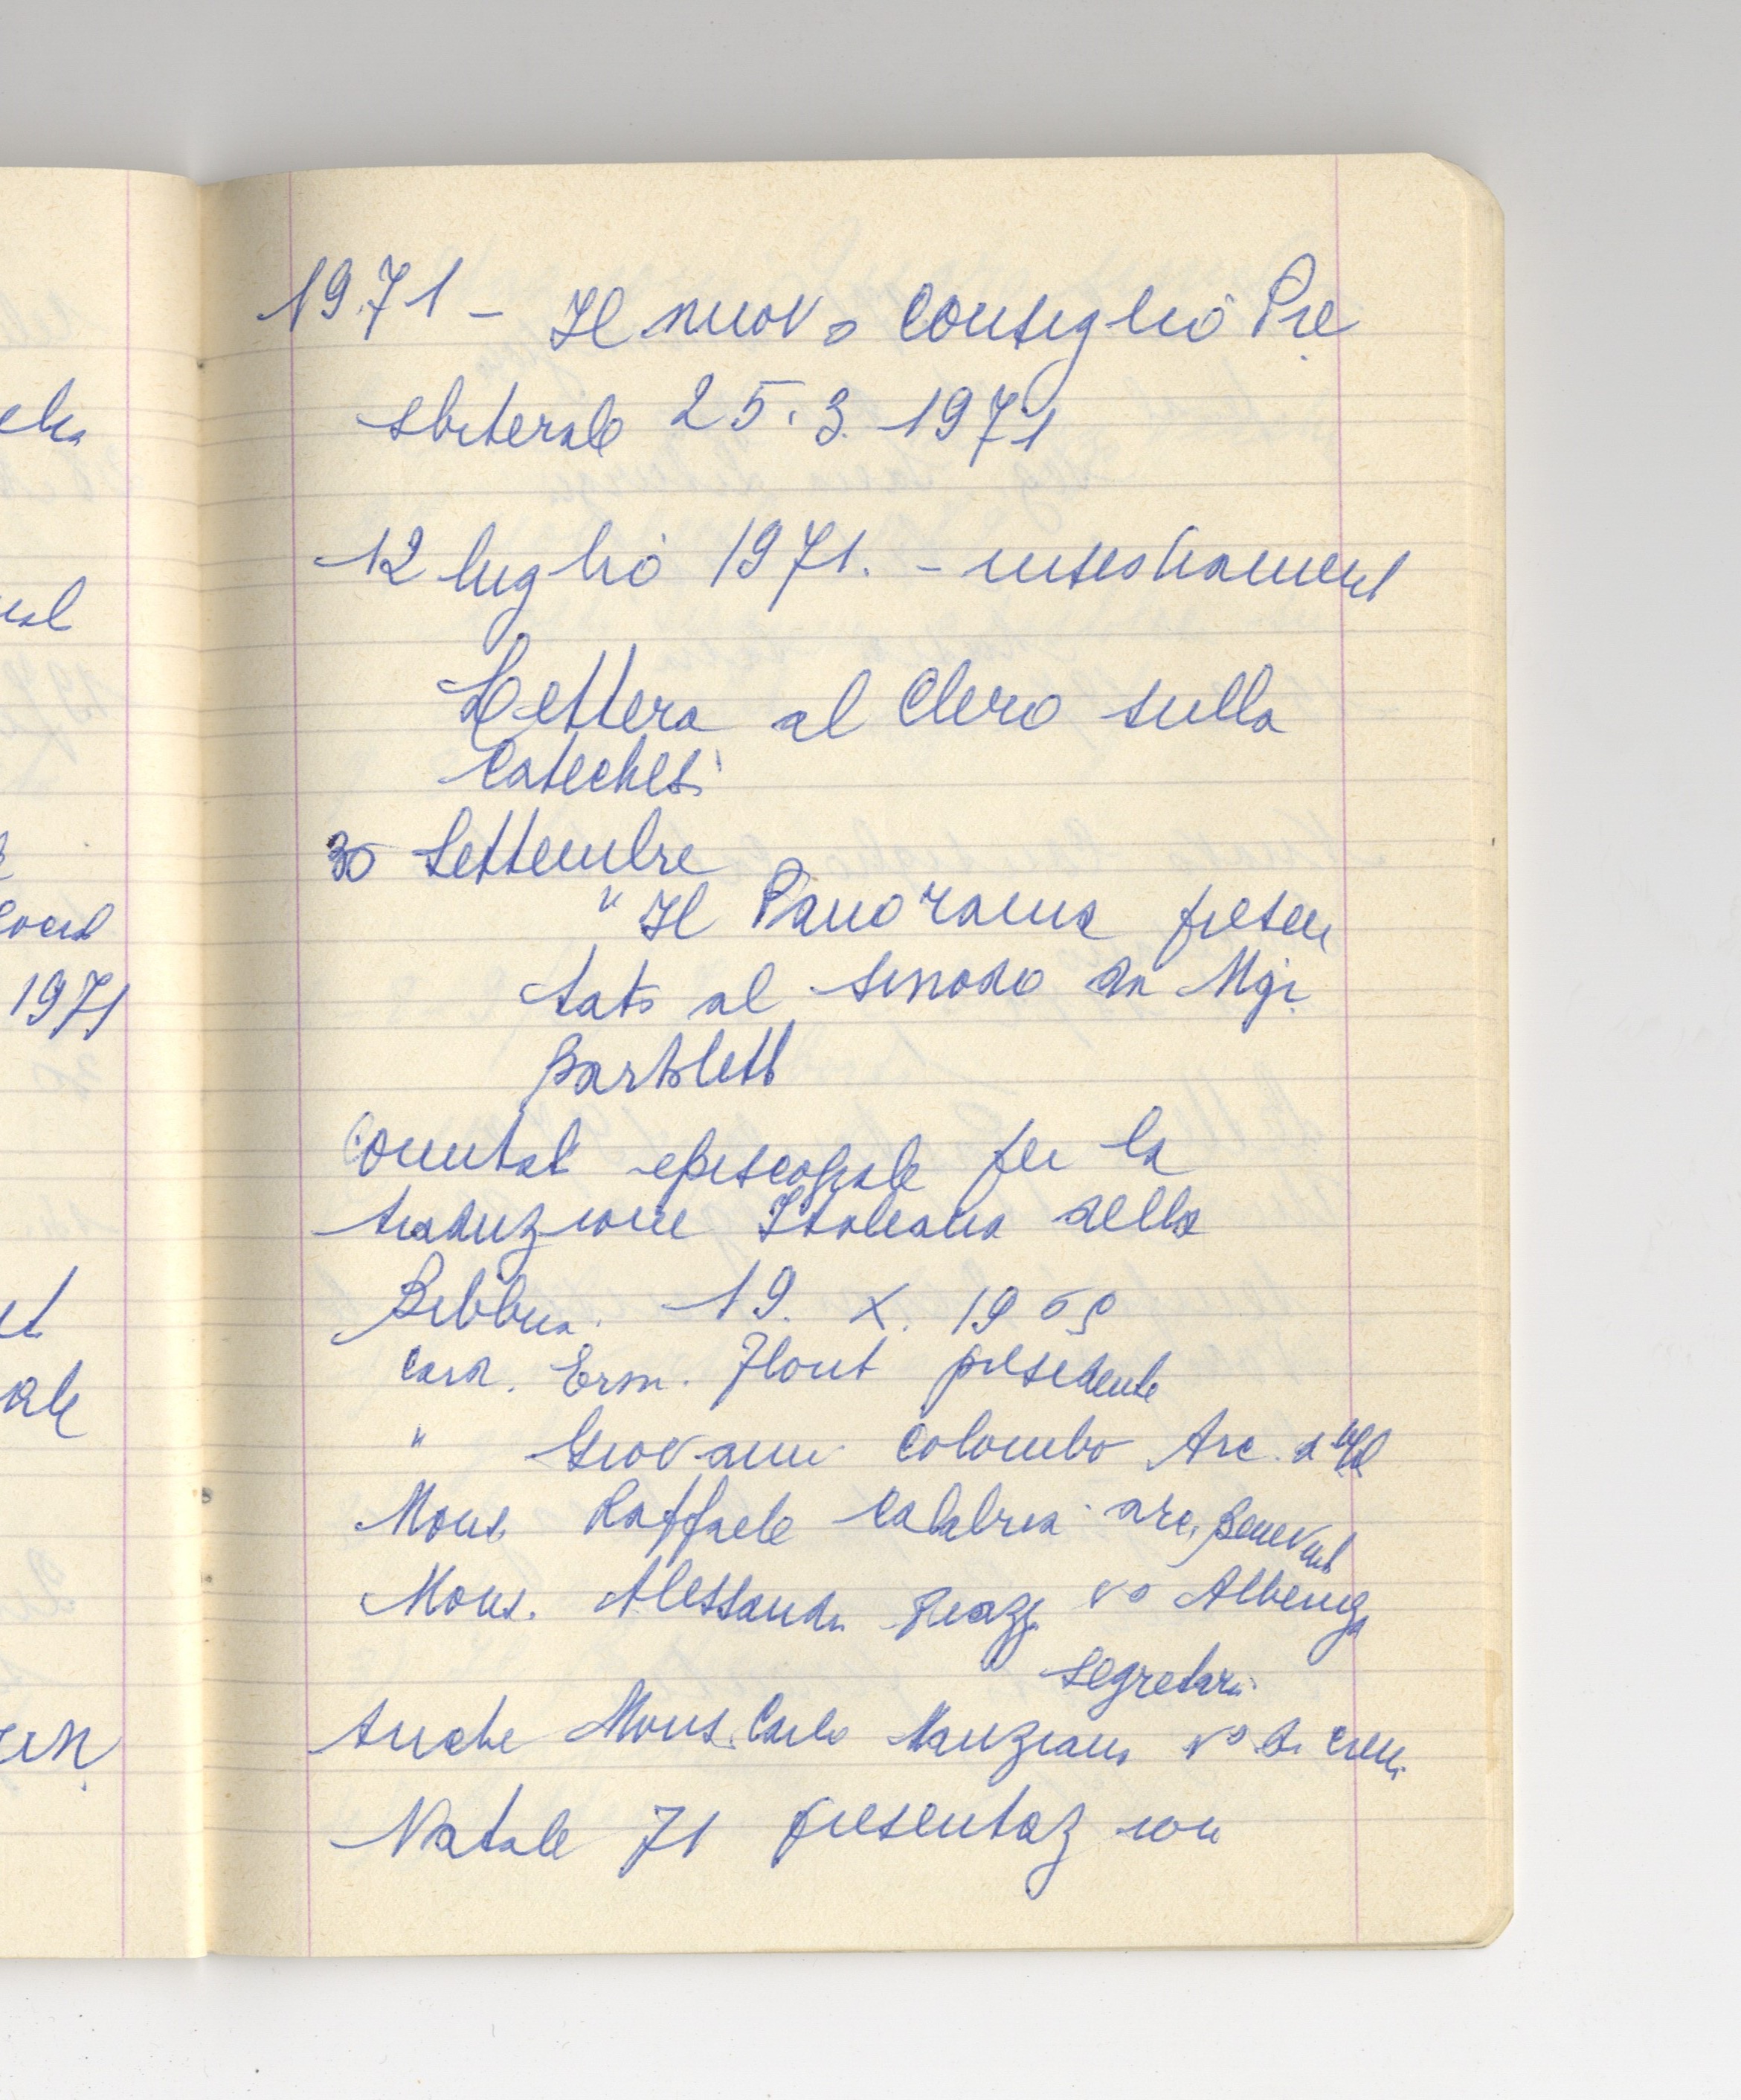 1971 - Il nuovo Consiglio Pre
sbiterale 25.3.1971
12 luglio 1971. -
Lettera al Clero sulla
Catechesi
30 Settembre
" Il Panorama presen
tato al sinodo da Mgr.
Bartoletti
Comitat episcopale per la
traduzione Italiana della
Bibbia. 19. X. 1965
Card. Erm. Florit presidente
" Giovanni Colombo Arc.
Mons. Raffaele Calabria arc. Benevent
Mons. Alessandro Piazzi vo Albenga
Segretario
Anche Mons. Carlo Manziana vo di Crem.
Natale 71 presentazion
elica
1971
ale